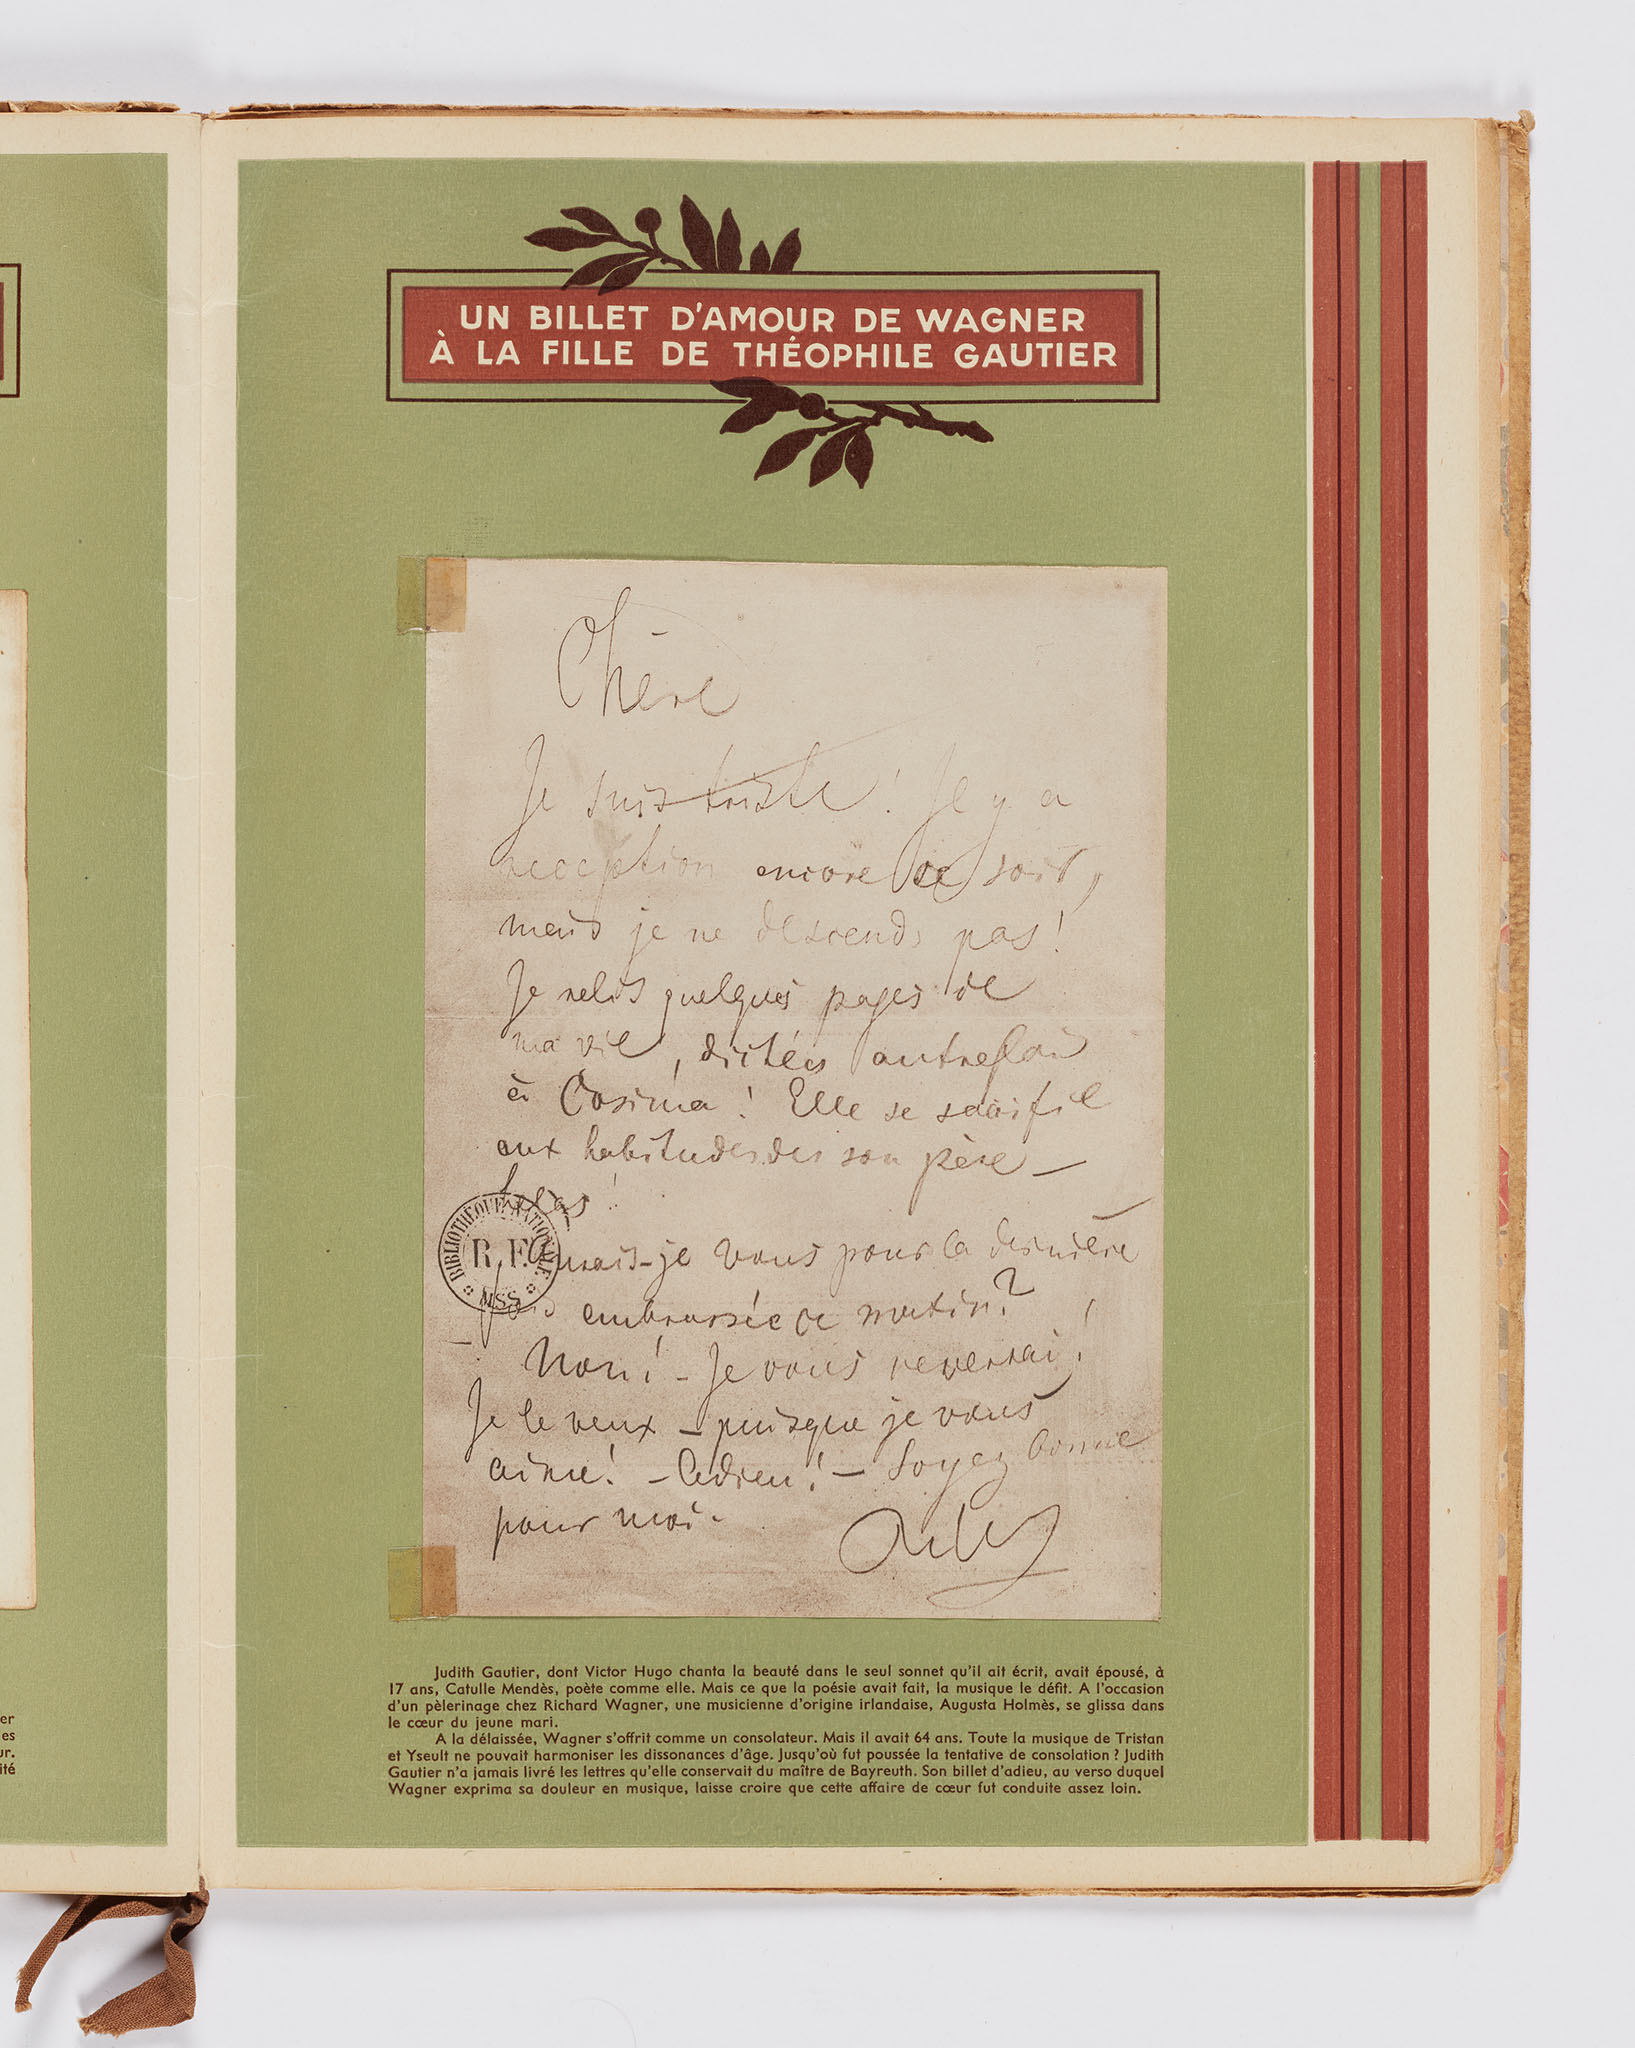 UN BILLET D'AMOUR DE WAGNER
À LA FILLE DE THÉOPHILE GAUTIER
Chère
Je suis triste! Il y a
reception encore ce soir,
mais je ne descends pas!
Je relis quelques pages de
ma vie, dictées autrefois
à Cosima! Elle se sacrifie
aux habitudes de son père —
helas!
Aurais-je vous pour la dernière
fois embrassée ce matin?
Non! — Je vous reverrai!
Je le veux — puisque je vous
aime! — Adieu! — Soyez bonne
pour moi.
BIBLIOTHÈQUE NATIONALE
R.F.
MSS
Judith Gautier, dont Victor Hugo chanta la beauté dans le seul sonnet qu'il ait écrit, avait épousé, à
17 ans, Catulle Mendès, poète comme elle. Mais ce que la poésie avait fait, la musique le défit. A l'occasion
d'un pèlerinage chez Richard Wagner, une musicienne d'origine irlandaise, Augusta Holmès, se glissa dans
le cœur du jeune mari.
A la délaissée, Wagner s'offrit comme un consolateur. Mais il avait 64 ans. Toute la musique de Tristan
et Yseult ne pouvait harmoniser les dissonances d'âge. Jusqu'où fut poussée la tentative de consolation ? Judith
Gautier n'a jamais livré les lettres qu'elle conservait du maître de Bayreuth. Son billet d'adieu, au verso duquel
Wagner exprima sa douleur en musique, laisse croire que cette affaire de cœur fut conduite assez loin.